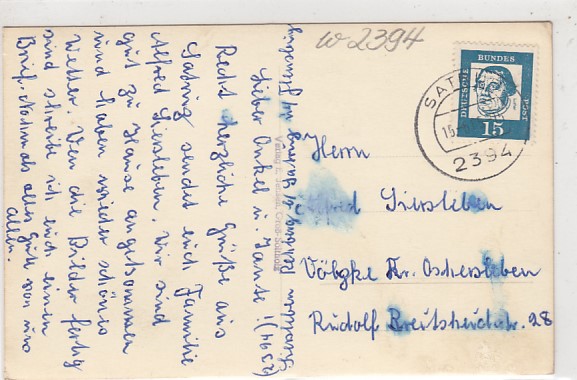 w 2394
DEUTSCHE
BUNDES
POST
15
SATRUP
15.
2394
Lieber Onkel u. Tante!
Recht herzliche Grüße aus
Satrup sendet euch Familie
Alfred Siersleben. Wir sind
gut zu Hause angekommen
und haben wieder schönes
Wetter. Wen die Bilder fertig
sind schreibe ich euch einen
Brief. Nochmals alles Gute von uns
allen.
(2394)
Verlag
Herrn
Alfred Siersleben
Völpke Kr. Oschersleben
Rudolf Breitscheidstr. 28